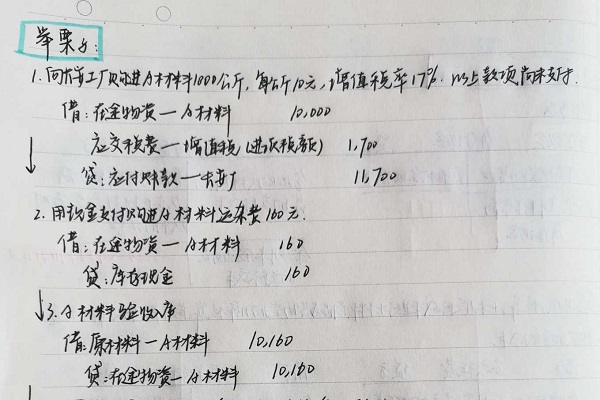 举栗子:
1. 向长江工厂购进A材料1000公斤, 每公斤10元, 增值税率17%. 以上款项尚未支付.
借: 在途物资—A材料 10,000
应交税费—增值税(进项税额) 1,700
贷: 应付账款—长江厂 11,700
2. 用现金支付购进A材料运杂费160元.
借: 在途物资—A材料 160
贷: 库存现金 160
3. A材料验收入库
借: 原材料—A材料 10,160
贷: 在途物资—A材料 10,160